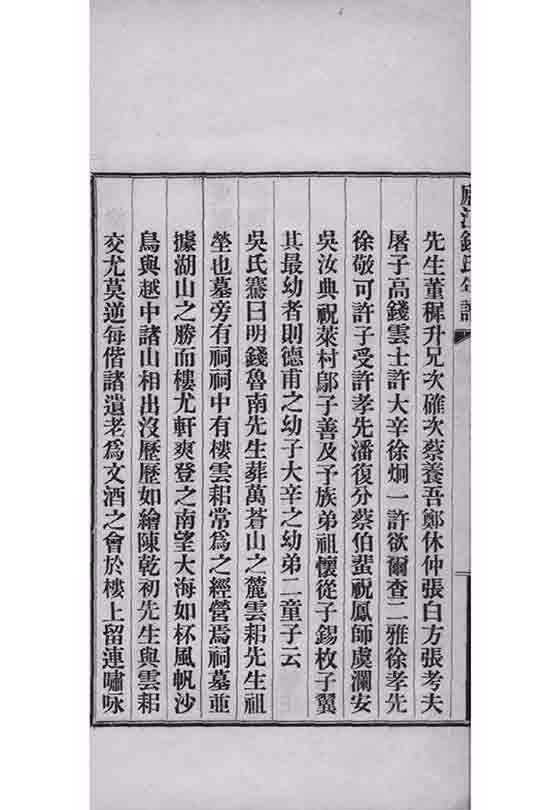 廬江錢氏年譜
先生董穉升兄次確次蔡養吾鄭休仲張白方張考夫
屠子高錢雲士許大辛徐炯一許欲爾查二雅徐孝先
徐敬可許子受許孝先潘復分蔡伯蜚祝鳳師虞瀾安
吳汝典祝萊村鄔子善及予族弟祖懷從子錫枚子翼
其最幼者則德甫之幼子大辛之幼弟二童子云
吳氏騫曰明錢魯南先生葬萬蒼山之麓雲耜先生祖
塋也墓旁有祠祠中有樓雲耜常爲之經營焉祠墓並
據湖山之勝而樓尤軒爽登之南望大海如杯風帆沙
鳥與越中諸山相出沒歷歷如繪陳乾初先生與雲耜
交尤莫逆每偕諸遺老爲文酒之會於樓上留連嘯咏